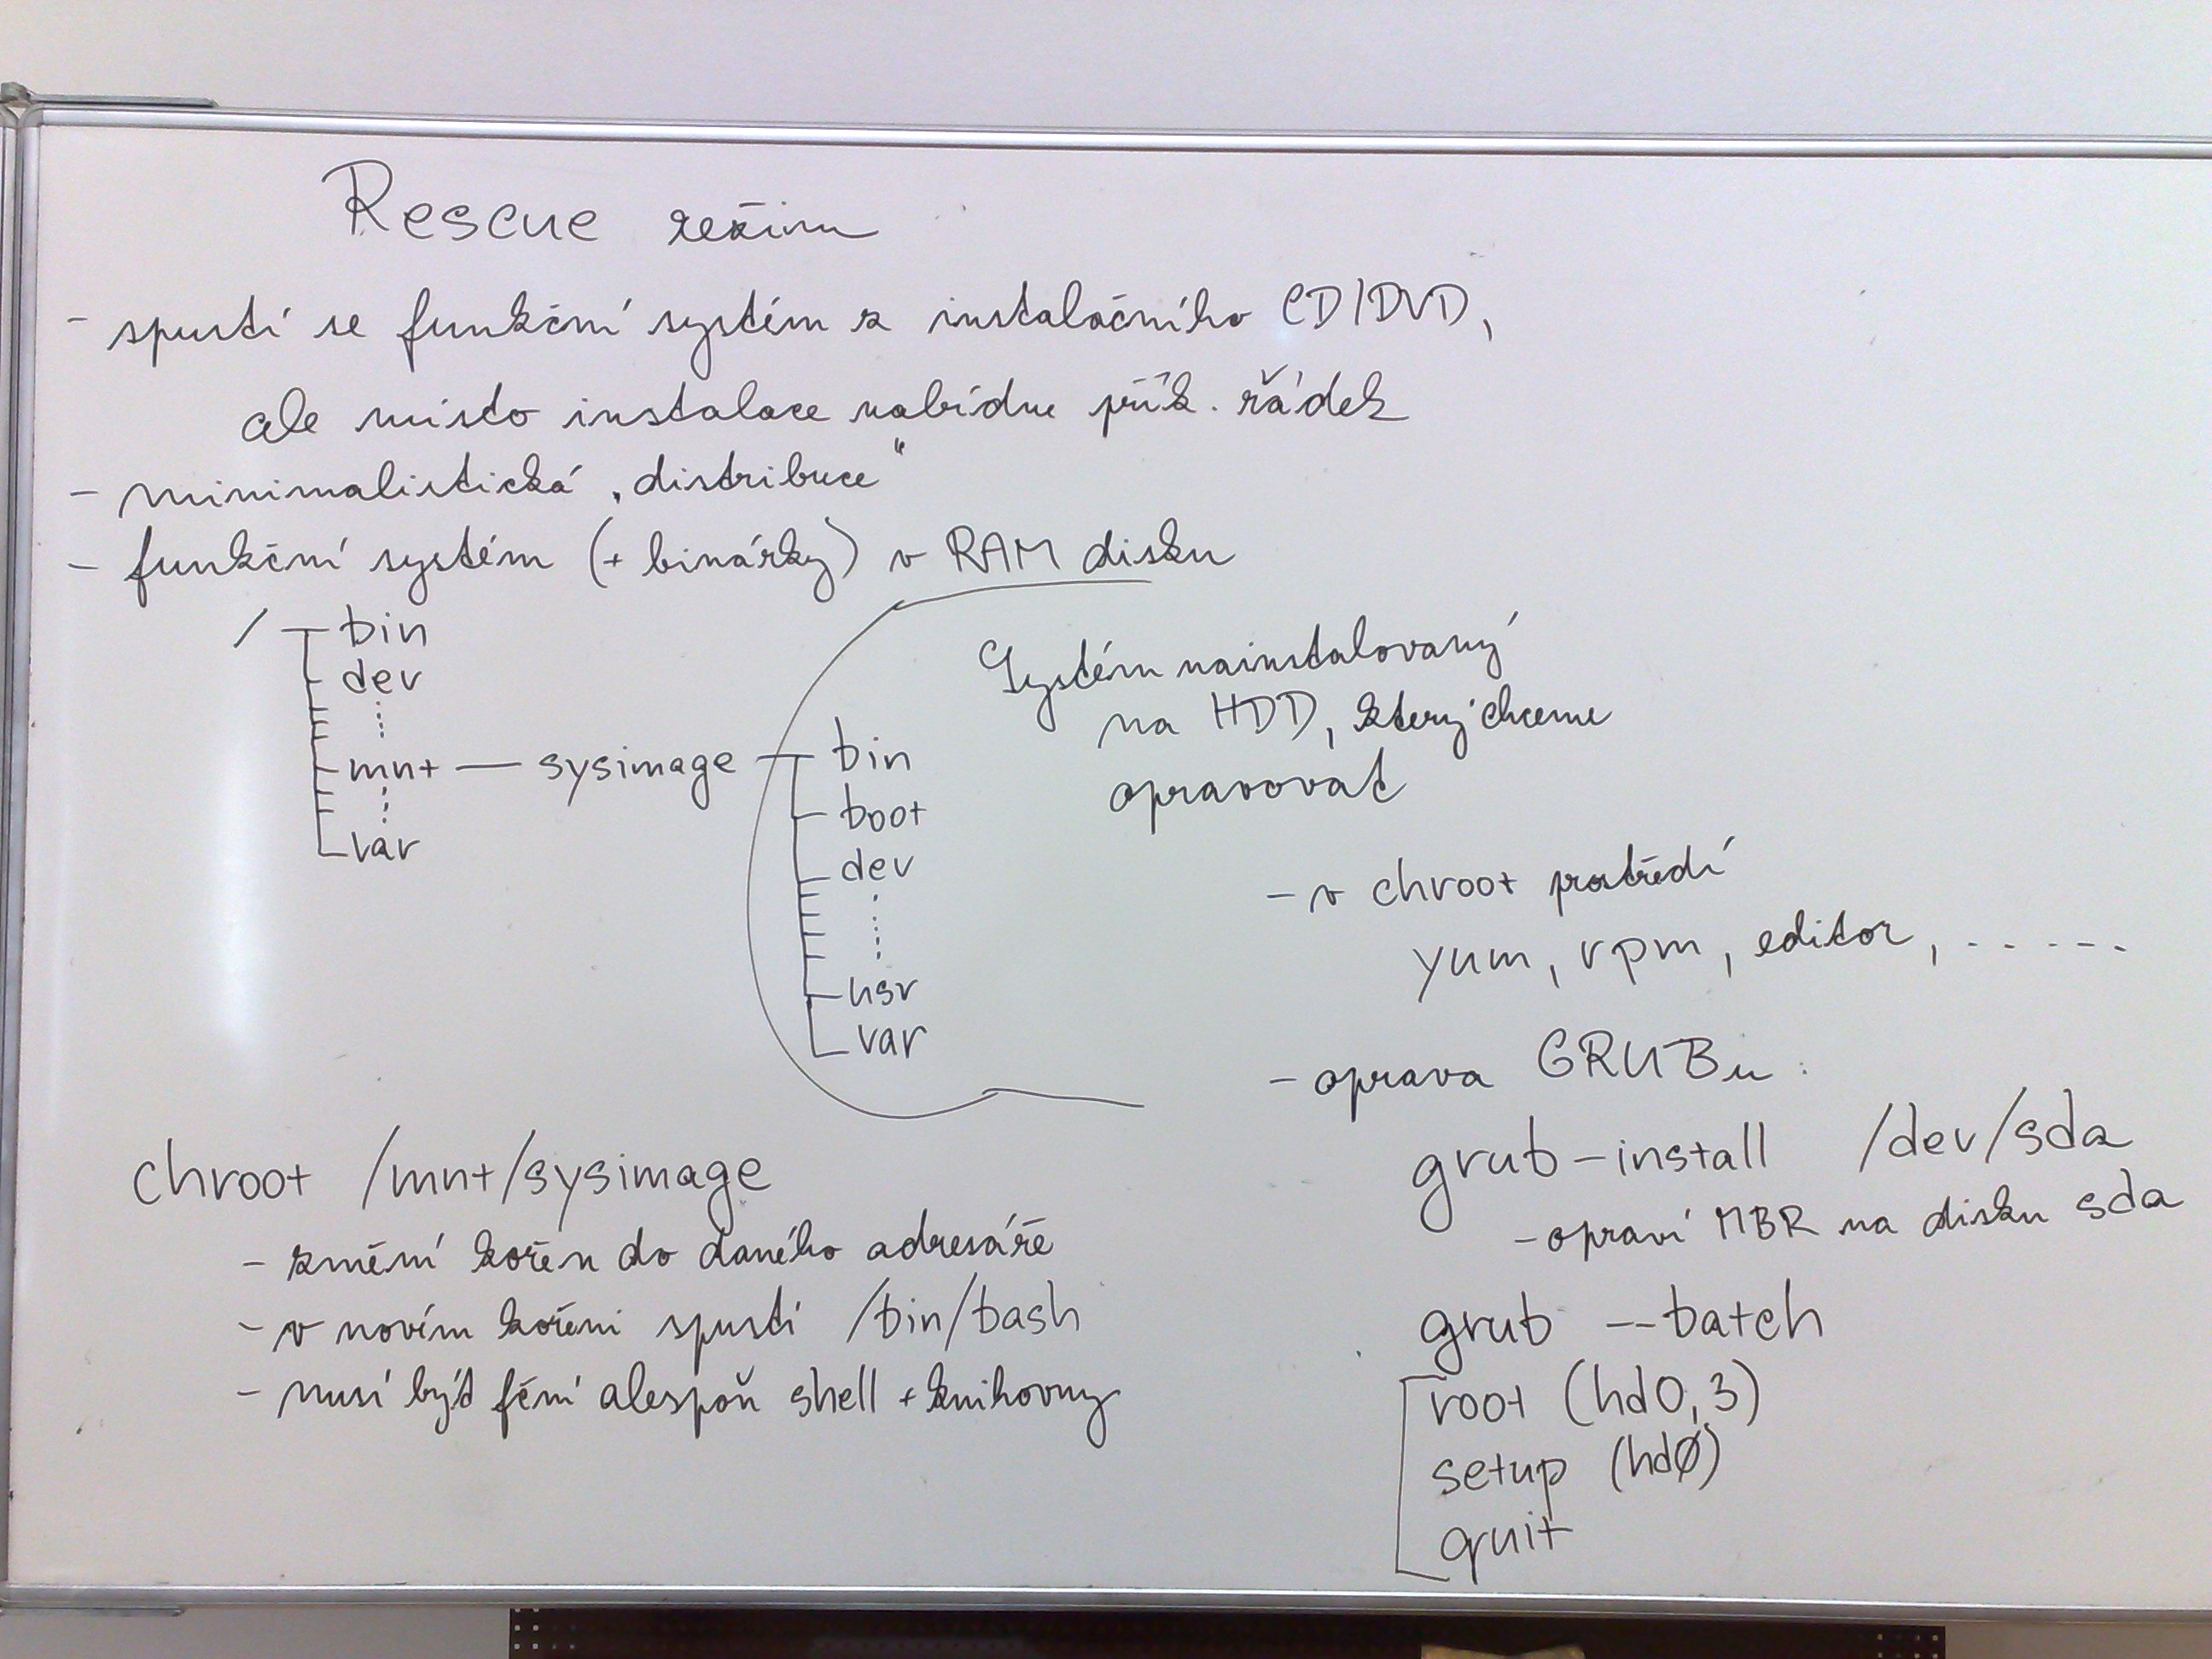 Rescue režim
- spustí se funkční systém z instalačního CD/DVD,
ale místo instalace nabídne přík. řádek
- minimalistická „distribuce“
- funkční systém (+ binárky) v RAM disku
/ bin
dev
mnt — sysimage
var
bin
boot
dev
usr
var
Systém nainstalovaný
na HDD, který chceme
opravovat
chroot /mnt/sysimage
- změní kořen do daného adresáře
- v novím kořeni spustí /bin/bash
- musí být fční alespoň shell + knihovny
- v chroot prostředí
yum, rpm, editor, .....
- oprava GRUBu:
grub-install /dev/sda
- opraví MBR na disku sda
grub --batch
root (hd0,3)
setup (hd0)
quit